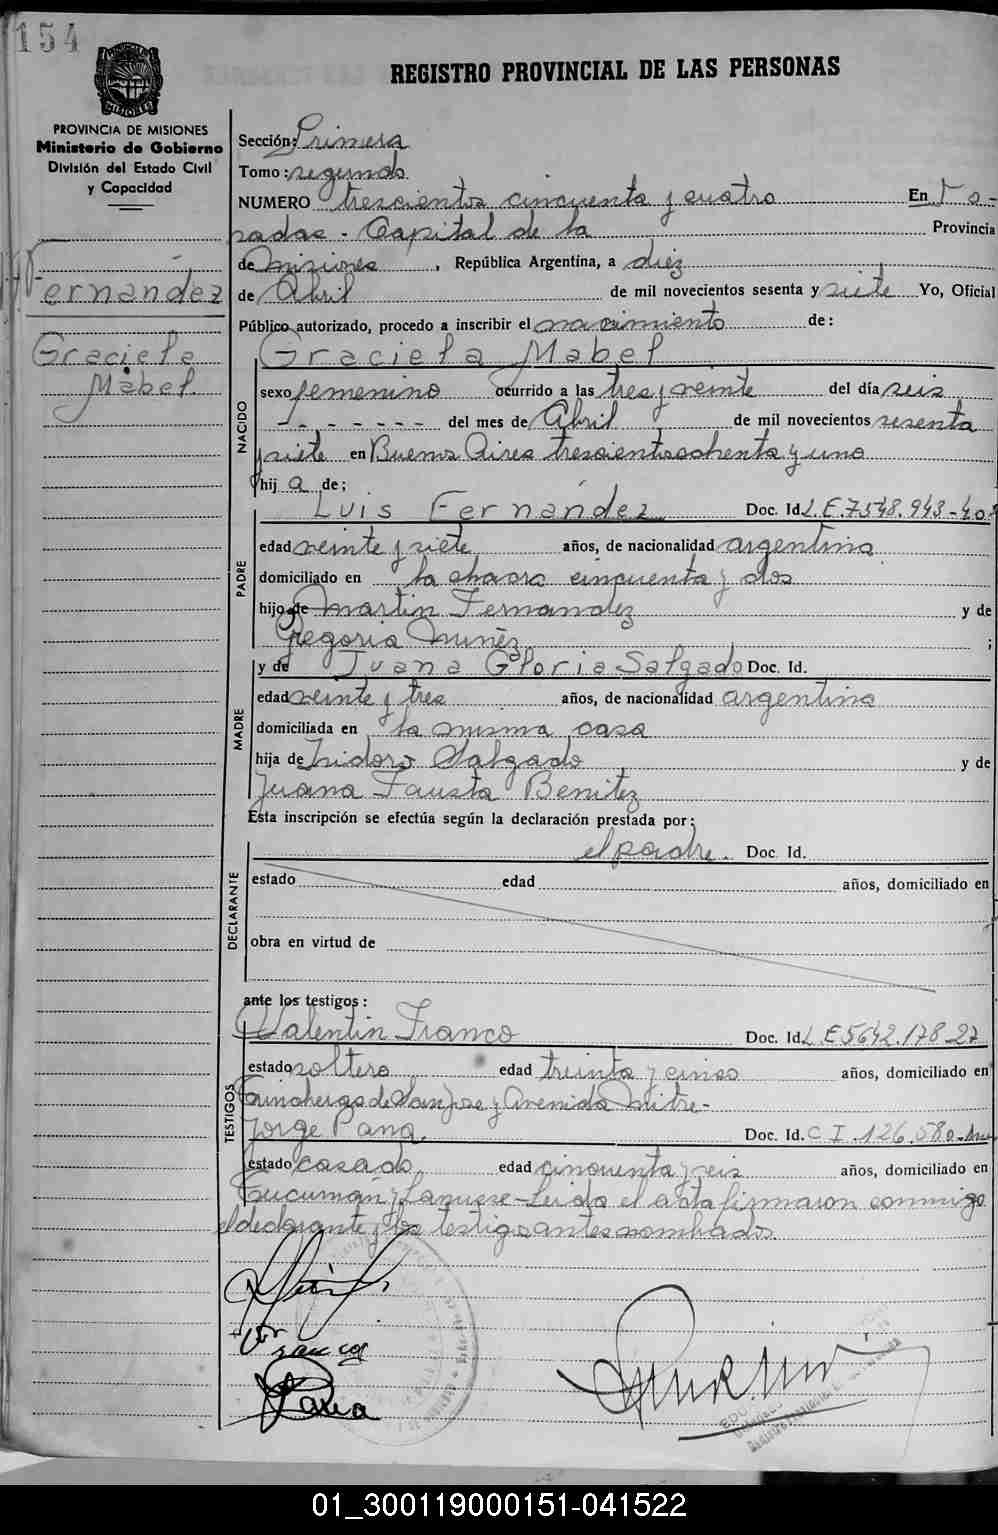 154
REGISTRO PROVINCIAL DE LAS PERSONAS
PROVINCIA DE MISIONES
Ministerio de Gobierno
División del Estado Civil
y Capacidad
Fernández
Graciela
Mabel.
Sección: Primera
Tomo: segundo
NUMERO trescientos cincuenta y cuatro En Po-
sadas - Capital de la Provincia
de Misiones, República Argentina, a diez
de Abril de mil novecientos sesenta y siete Yo, Oficial
Público autorizado, procedo a inscribir el nacimiento de:
Graciela Mabel
NACIDO
sexo femenino ocurrido a las tres y veinte del día seis
- - - - - - - del mes de Abril de mil novecientos sesenta
y siete en Buenos Aires trescientos ochenta y uno
hij a de;
PADRE
Luis Fernández Doc. Id. L.E. 7.548.943-
edad veinte y siete años, de nacionalidad argentina
domiciliado en la chacra cincuenta y dos
hijo de Martin Fernandez y de
Gregoria Nuñez ;
y de Juana Gloria Salgado Doc. Id.
MADRE
edad veinte y tres años, de nacionalidad argentina
domiciliada en la misma casa
hija de Isidoro Salgado y de
Juana Fausta Benitez
Esta inscripción se efectúa según la declaración prestada por;
el padre. Doc. Id.
DECLARANTE
estado edad años, domiciliado en
obra en virtud de
ante los testigos:
TESTIGOS
Valentin Franco Doc. Id. L.E 5642.178-27
estado soltero edad treinta y cinco años, domiciliado en
Trincheras de San Jose y Avenida Mitre-
Jorge Pana. Doc. Id. C.I. 126.580-
estado casado edad cincuenta y seis años, domiciliado en
Tucumán y Lanusse- Leida el acta firmaron conmigo
el declarante y los testigos antes nombrados.
Franco
01_300119000151-041522